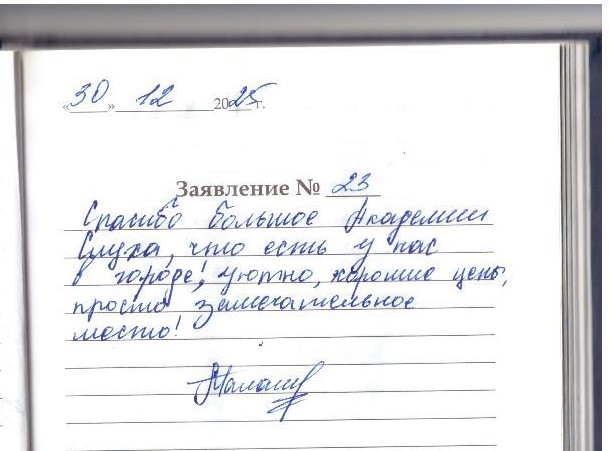 «30» 12 2025 г.
Заявление № 23
Спасибо большое Академии
Слуха, что есть у нас
в городе! Уютно, хорошие цены,
просто замечательное
место!